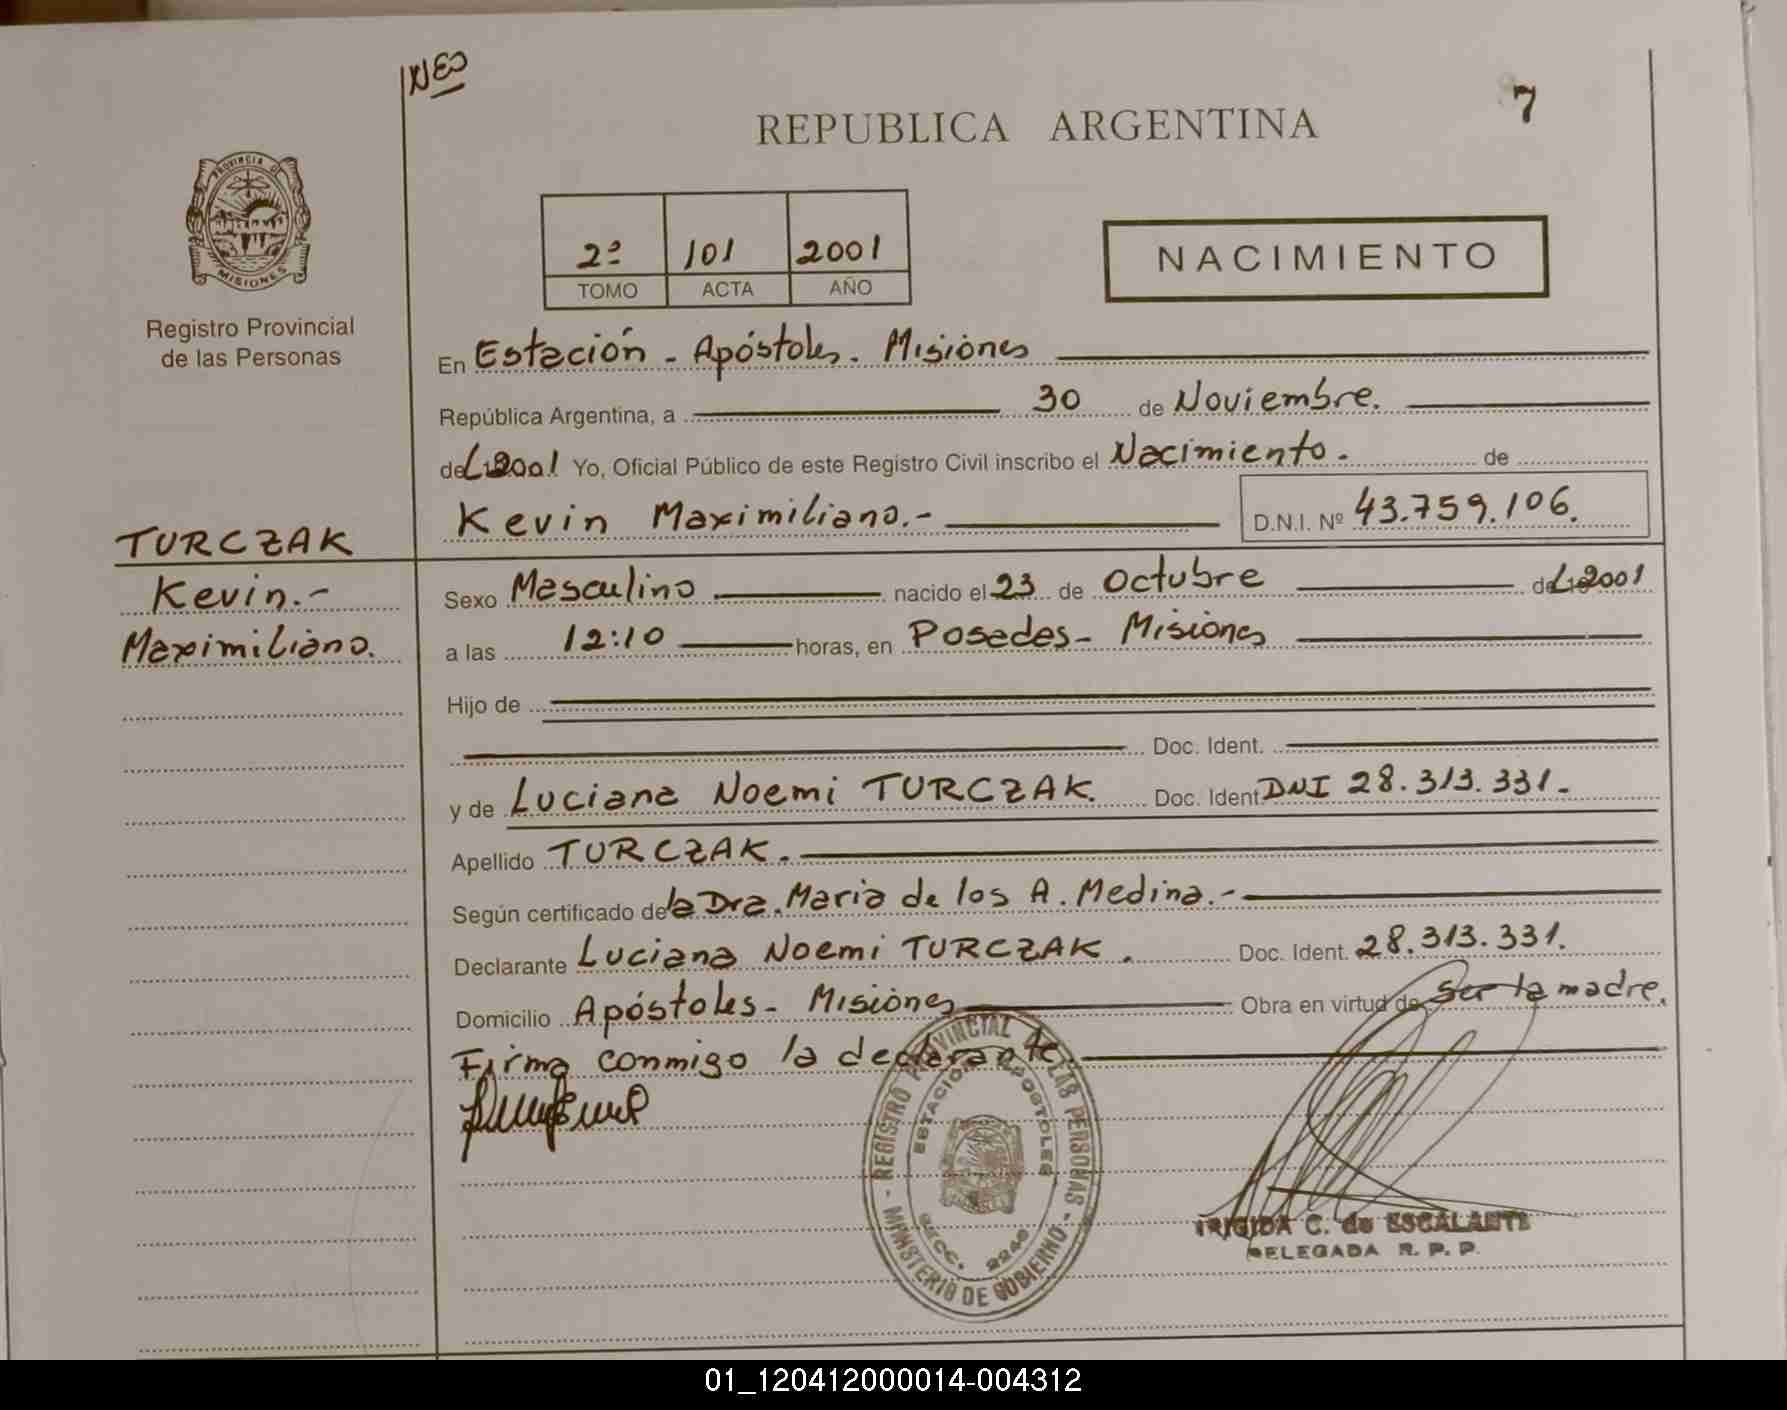 NEO
7
REPUBLICA ARGENTINA
PROVINCIA D
MISIONES
Registro Provincial
de las Personas
2º 101 2001
TOMO ACTA AÑO
NACIMIENTO
En Estación - Apóstoles. Misiones
República Argentina, a 30 de Noviembre.
del 2001 Yo, Oficial Público de este Registro Civil inscribo el Nacimiento. de
Kevin Maximiliano.- D.N.I. Nº 43.759.106.
TURCZAK
Kevin.-
Maximiliano.
Sexo Masculino nacido el 23 de Octubre del 2001
a las 12:10 horas, en Posadas - Misiones
Hijo de
Doc. Ident.
y de Luciana Noemi TURCZAK. Doc. Ident DNI 28.313.331.-
Apellido TURCZAK.
Según certificado de la Dra. Maria de los A. Medina.-
Declarante Luciana Noemi TURCZAK. Doc. Ident. 28.313.331.
Domicilio Apóstoles - Misiones Obra en virtud de ser la madre.
Firma conmigo la declarante.
REGISTRO PROVINCIAL DE LAS PERSONAS - MINISTERIO DE GOBIERNO -
ESTACION APOSTOLES
SECC. 2240
BRIGIDA C. de ESCALANTE
DELEGADA R. P. P.
01_120412000014-004312